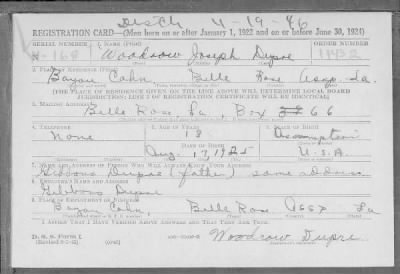 Disch 4-19-46
REGISTRATION CARD—(Men born on or after January 1, 1922 and on or before June 30, 1924)
SERIAL NUMBER 1. NAME (Print) ORDER NUMBER
W-168 Woodrow Joseph Dupre 11432
2. PLACE OF RESIDENCE (Print)
Bayou Cahn, Belle Rose Assp. La.
[THE PLACE OF RESIDENCE GIVEN ON THE LINE ABOVE WILL DETERMINE LOCAL BOARD
JURISDICTION; LINE 2 OF REGISTRATION CERTIFICATE WILL BE IDENTICAL]
3. MAILING ADDRESS
Belle Rose La., Box 66
4. TELEPHONE 5. AGE IN YEARS 6. PLACE OF BIRTH
None 18 Assumption
DATE OF BIRTH
Aug. 7, 1925 U.S.A.
7. NAME AND ADDRESS OF PERSON WHO WILL ALWAYS KNOW YOUR ADDRESS
Gibbons Dupre (father) same address
8. EMPLOYER'S NAME AND ADDRESS
Gibbons Dupre
9. PLACE OF EMPLOYMENT OR BUSINESS
Bayou Cahn, Belle Rose Assp La
I AFFIRM THAT I HAVE VERIFIED ABOVE ANSWERS AND THAT THEY ARE TRUE.
D. S. S. Form 1
(over)
Woodrow Dupre